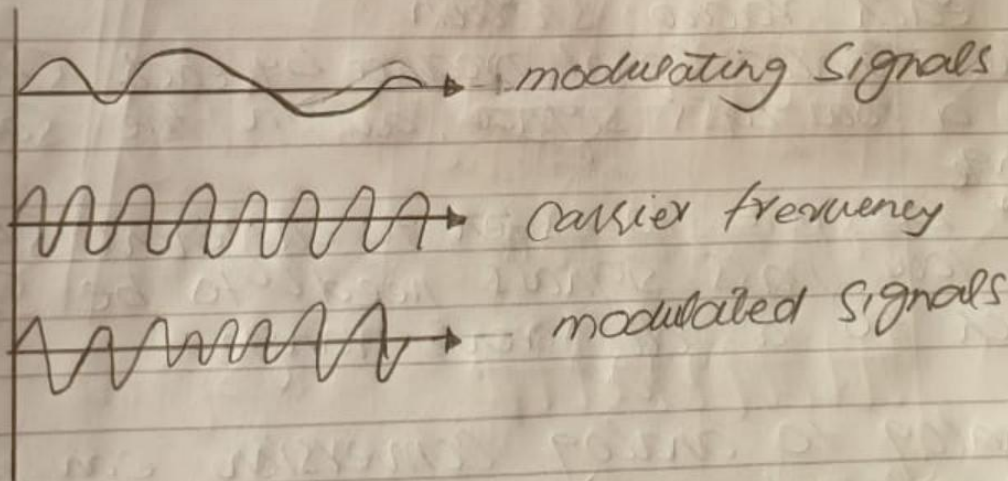 modulating Signals
Carrier frequency
modulated Signals